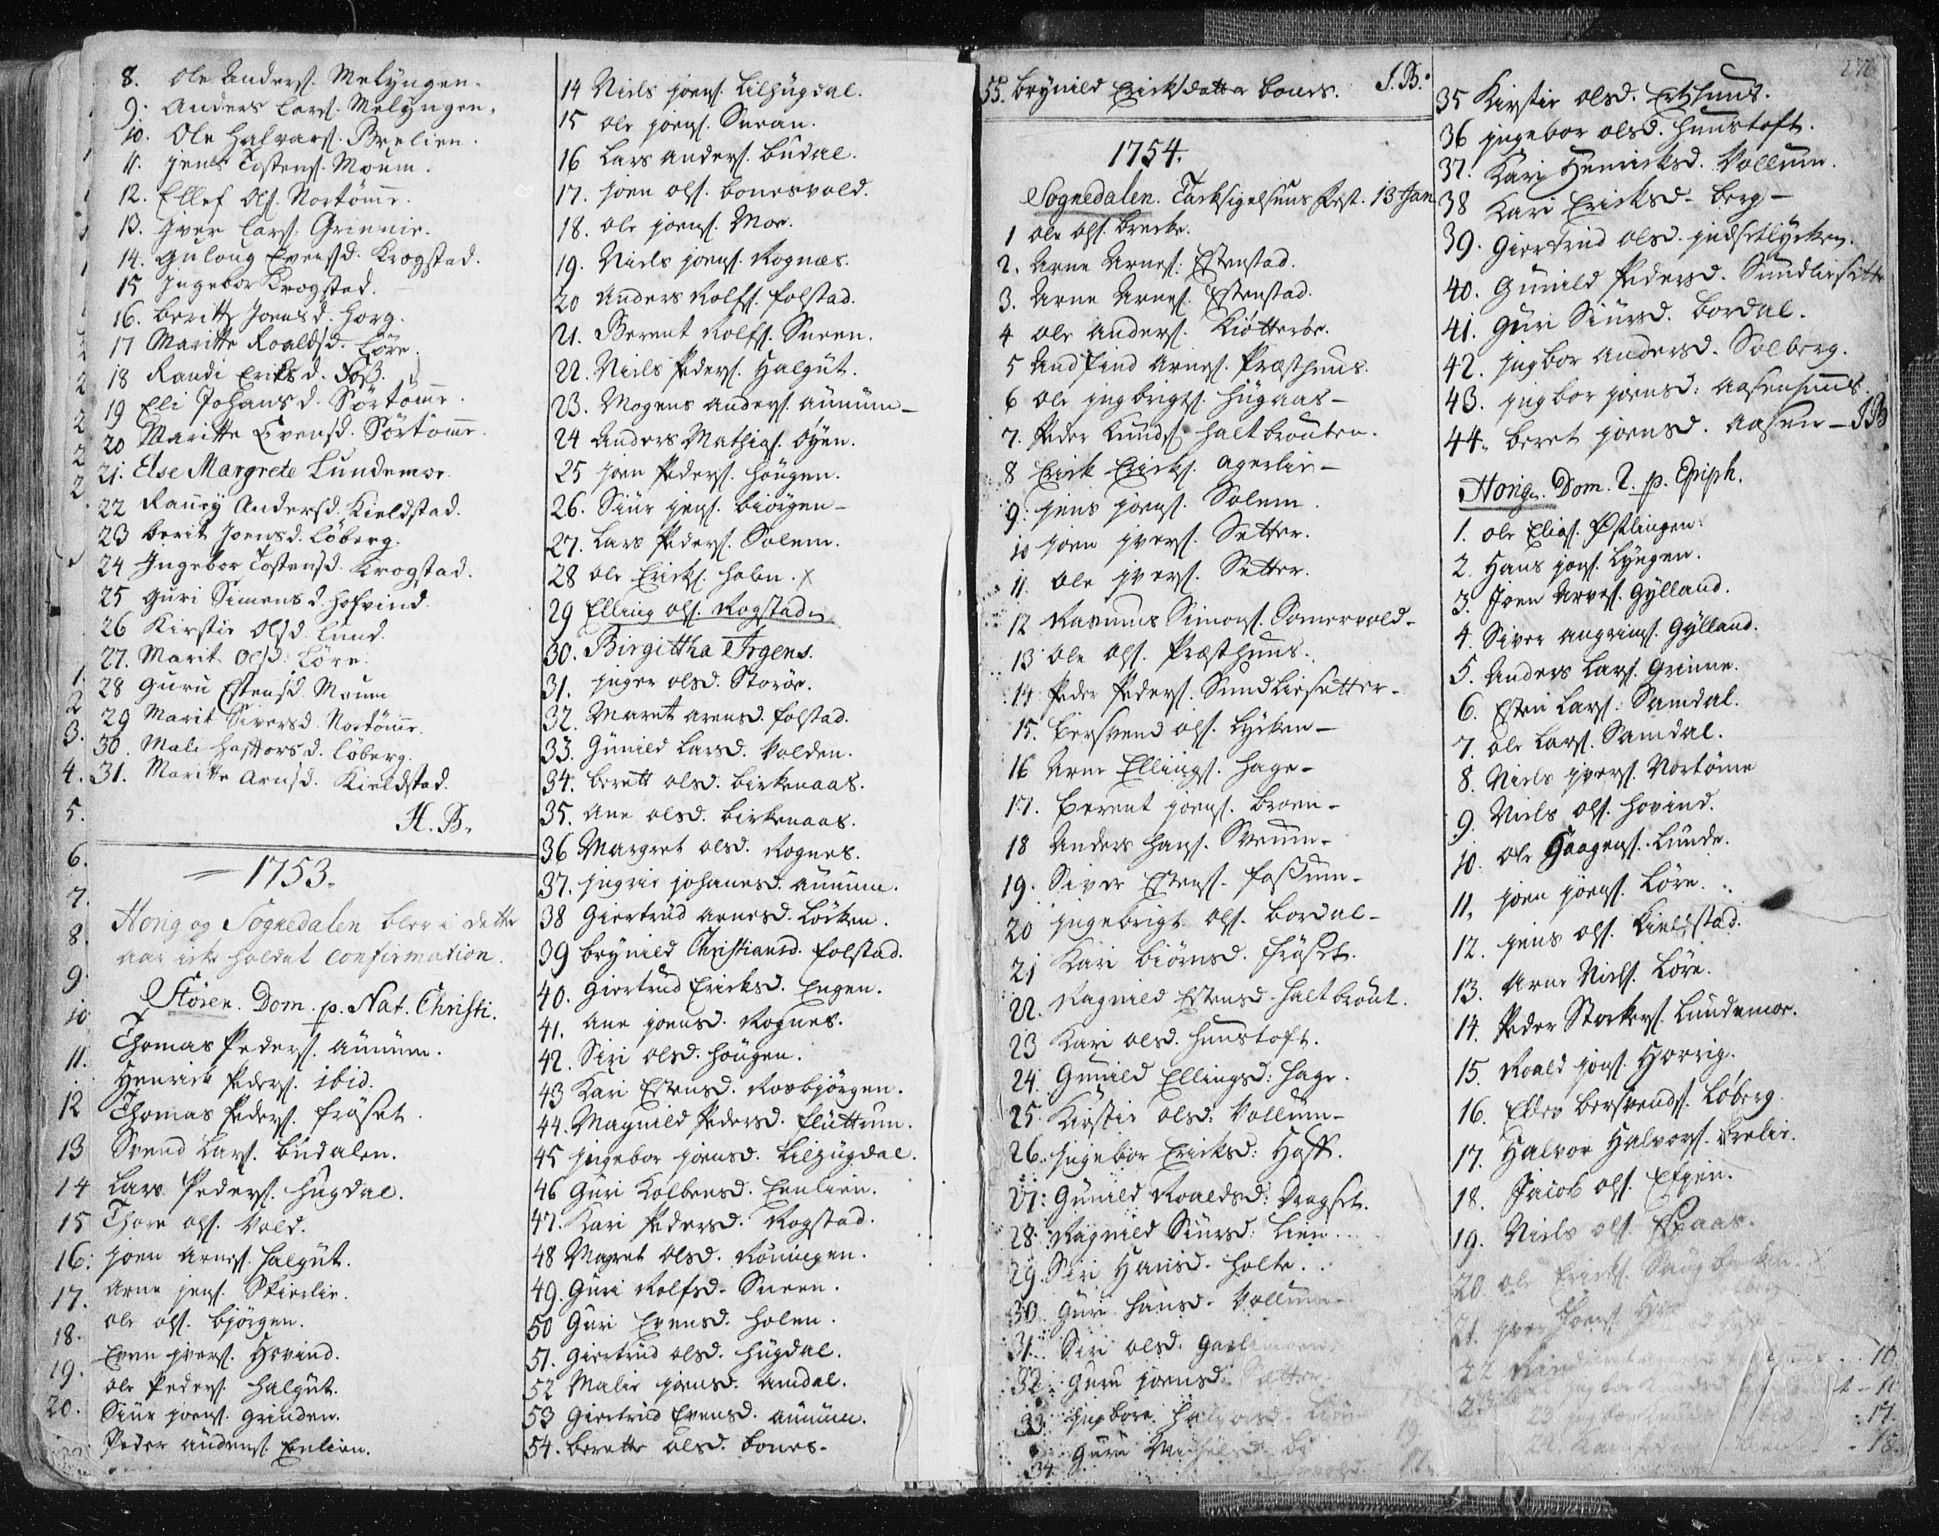 8. Ole Anders. Melÿngen.
9. Anders Lars. Melÿngen.
10. Ole Halvars. Brelien.
11. Jens Tostens. Moum.
12. Ellef Ols. Nortömе.
13. Iver Lars. Grinnie.
14. Guloug Evensd. Krogstad.
15 Ingebor Krogstad.
16. Beritte Joensd. Horg.
17 Maritte Roaldsd. Löre.
18 Randi Eriksd. Foss.
19 Eli Johansd. Sörtömе.
20 Maritte Evensd. Sörtömе.
21. Else Margrete Lundemoe.
22 Andersd. Kieldstad.
23 Berit Joensd. Löberg.
24 Ingebor Tostensd. Krogstad.
25 Guri Simensd. Hofvind.
26 Kirstie Olsd. Lund.
27. Marit Olsd. Löre.
28 Guru Estensd. Moum
29 Marit Siversd. Nortömе.
30. Mali d. Löberg.
31. Maritte Arnsd. Kieldstad.
H. B.
1753.
Horig og Sognedalen blev i dette
aar icke holdet Confirmation.
Stören. Dom. p. Nat. Christi.
Thomas Peders. Aunum.
Henrick Peders. ibid.
Thomas Peders. Fröset.
Svend Lars. Budalen.
Lars Peders. Hugdal.
Thore Ols. Vold.
Joen Arnes. Halgut.
Arne Jens. Skierlie.
Ole Ols. Björgen.
Even Ivers. Hovind.
Ole Peders. Halgut.
Siur Joens. Grinden.
Peder Audens. Enlien.
14 Niels Joens. Lilhugdal.
15 Ole Joens. Sneen.
16 Lars Anders. Budal.
17. Joen Ols. Bonesvold.
18. Ole Joens. Moe.
19. Niels Joens. Rognæs.
20 Anders Rolfs. Folstad.
21. Berent Rolfs. Sneen.
22. Niels Peders. Halgut.
23. Mogens Anders. Aunum
24 Anders Mathias. Öyen.
25 Joen Peders. Hougen.
26. Siur Jens. Biörgen
27. Lars Peders. Solem.
28 Ole Ericks. Holen. x
29 Elling Ols. Rogstad
30. Birgittha Irgens.
31. Inger Olsd. Storöe.
32. Maret Arensd. Folstad.
33. Gunild Larsd. Volden.
34. Berett Olsd. Birkenaas.
35. Ane Olsd. Birkenaas.
36 Margret Olsd. Rognes.
37. Ingrie Johanesd. Aunum.
38 Giertrud Arnesd. Löcken.
39 Brynild Christiansd. Folstad.
40. Giertrud Ericksd. Engen.
41. Ane Joensd. Rognes.
42. Siri Olsd. Hougen.
43 Kari Estensd. Rosbjörgen.
44. Magnild Pedersd. Fluttum.
45 Ingebor Joensd. Lilhugdal.
46 Guri Kolbensd. Enlien.
47. Kari Pedersd. Rogstad.
48 Magret Olsd. Röningen.
49. Guri Rolfsd. Sneen.
50 Guri Evensd. Holen.
51. Giertrud Olsd. Hugdal.
52 Malie Joensd. Amdal.
53 Giertrud Evensd. Aunum.
54. Berette Olsd. Bones.
55. Brynild Erickdatter Bones. I. B.
1754.
Sognedalen. Tacksigelsens Fest. 13 Jan
1 Ole Ols. Brecke.
2. Arne Arnes. Estenstad.
3. Arne Arnes. Estenstad.
4 Ole Anders. Kiötteröe.
5 Arnes. Præsthuus.
6 Ole Ingbrigts. Hugaas
7. Peder Knuds. Haltbrouten.
8 Erick Ericks. Agerlie
9. Jens Joens. Solem.
10 Joen Ivers. Setter.
11. Ole Ivers. Setter.
12 Rasmus Simons. Somervold
13 Ole Ols. Præsthuus.
14 Peder Peders. Sundliesetter
15. Bersvend Ols. Lÿcken
16 Arne Ellings. Hage
17. Berent Joens. Broen
18 Anders Hans. Sveum
19. Siver Estens. Fossum
20 Ingebrigt Ols. Bordal
21 Kari Biörnsd. Fröset.
22. Ragnild Estensd. Haltbrout.
23 Kari Olsd. Hunstoft.
24. Gunild Ellingsd. Hage.
25. Kirstie Olsd. Vollum
26. Ingebor Ericksd. Hoff.
27. Gunild Roaldsd. Dragset.
28. Ragnild Siursd. Lien
29. Siri Hansd. Holte.
30 Guri Hansd. Vollum
31. Siri Olsd.
32. Guru Joensd. Setter
33. Ingbore
34 Guru
35 Kirstie Olsd.
36 Ingebor Olsd. Hunstoft.
37. Kari Henricksd. Vollum.
38 Kari Ericksd. Berg
39. Giertrud Olsd.
40. Gunild Pedersd. Sundliesetter
41. Guri Siursd. Bordal.
42. Ingbor Andersd. Solberg.
43. Ingbor Joensd. Aasenhuus.
44. Beret Joensd. Aasen I B
Horig. Dom. 2. p. Epiph.
1. Ole Elias. Östlingen.
2. Hans Jons. Lÿngen.
3. Joen Arves. Gÿlland.
4. Siver Angrims. Gÿlland.
5. Anders Lars. Grinne.
6. Esten Lars. Samdal.
7. Ole Lars. Samdal.
8. Niels Ivers. Nortöme
9. Niels Ols. Hovind.
10. Ole Haagens. Lunde.
11. Joen Joens. Löre.
12. Jens Ols. Kieldstad.
13. Arne Niels. Löre.
14. Peder Storkers. Lundemoe.
15. Roald Jons. Horrig.
16. Ellev Bersvends. Löberg.
17. Halvor Halvors. Brelie.
18. Jacob Ols.
19. Niels Ols. Espaas.
20. Ole Ericks.
21. Iver Joens.
22
23